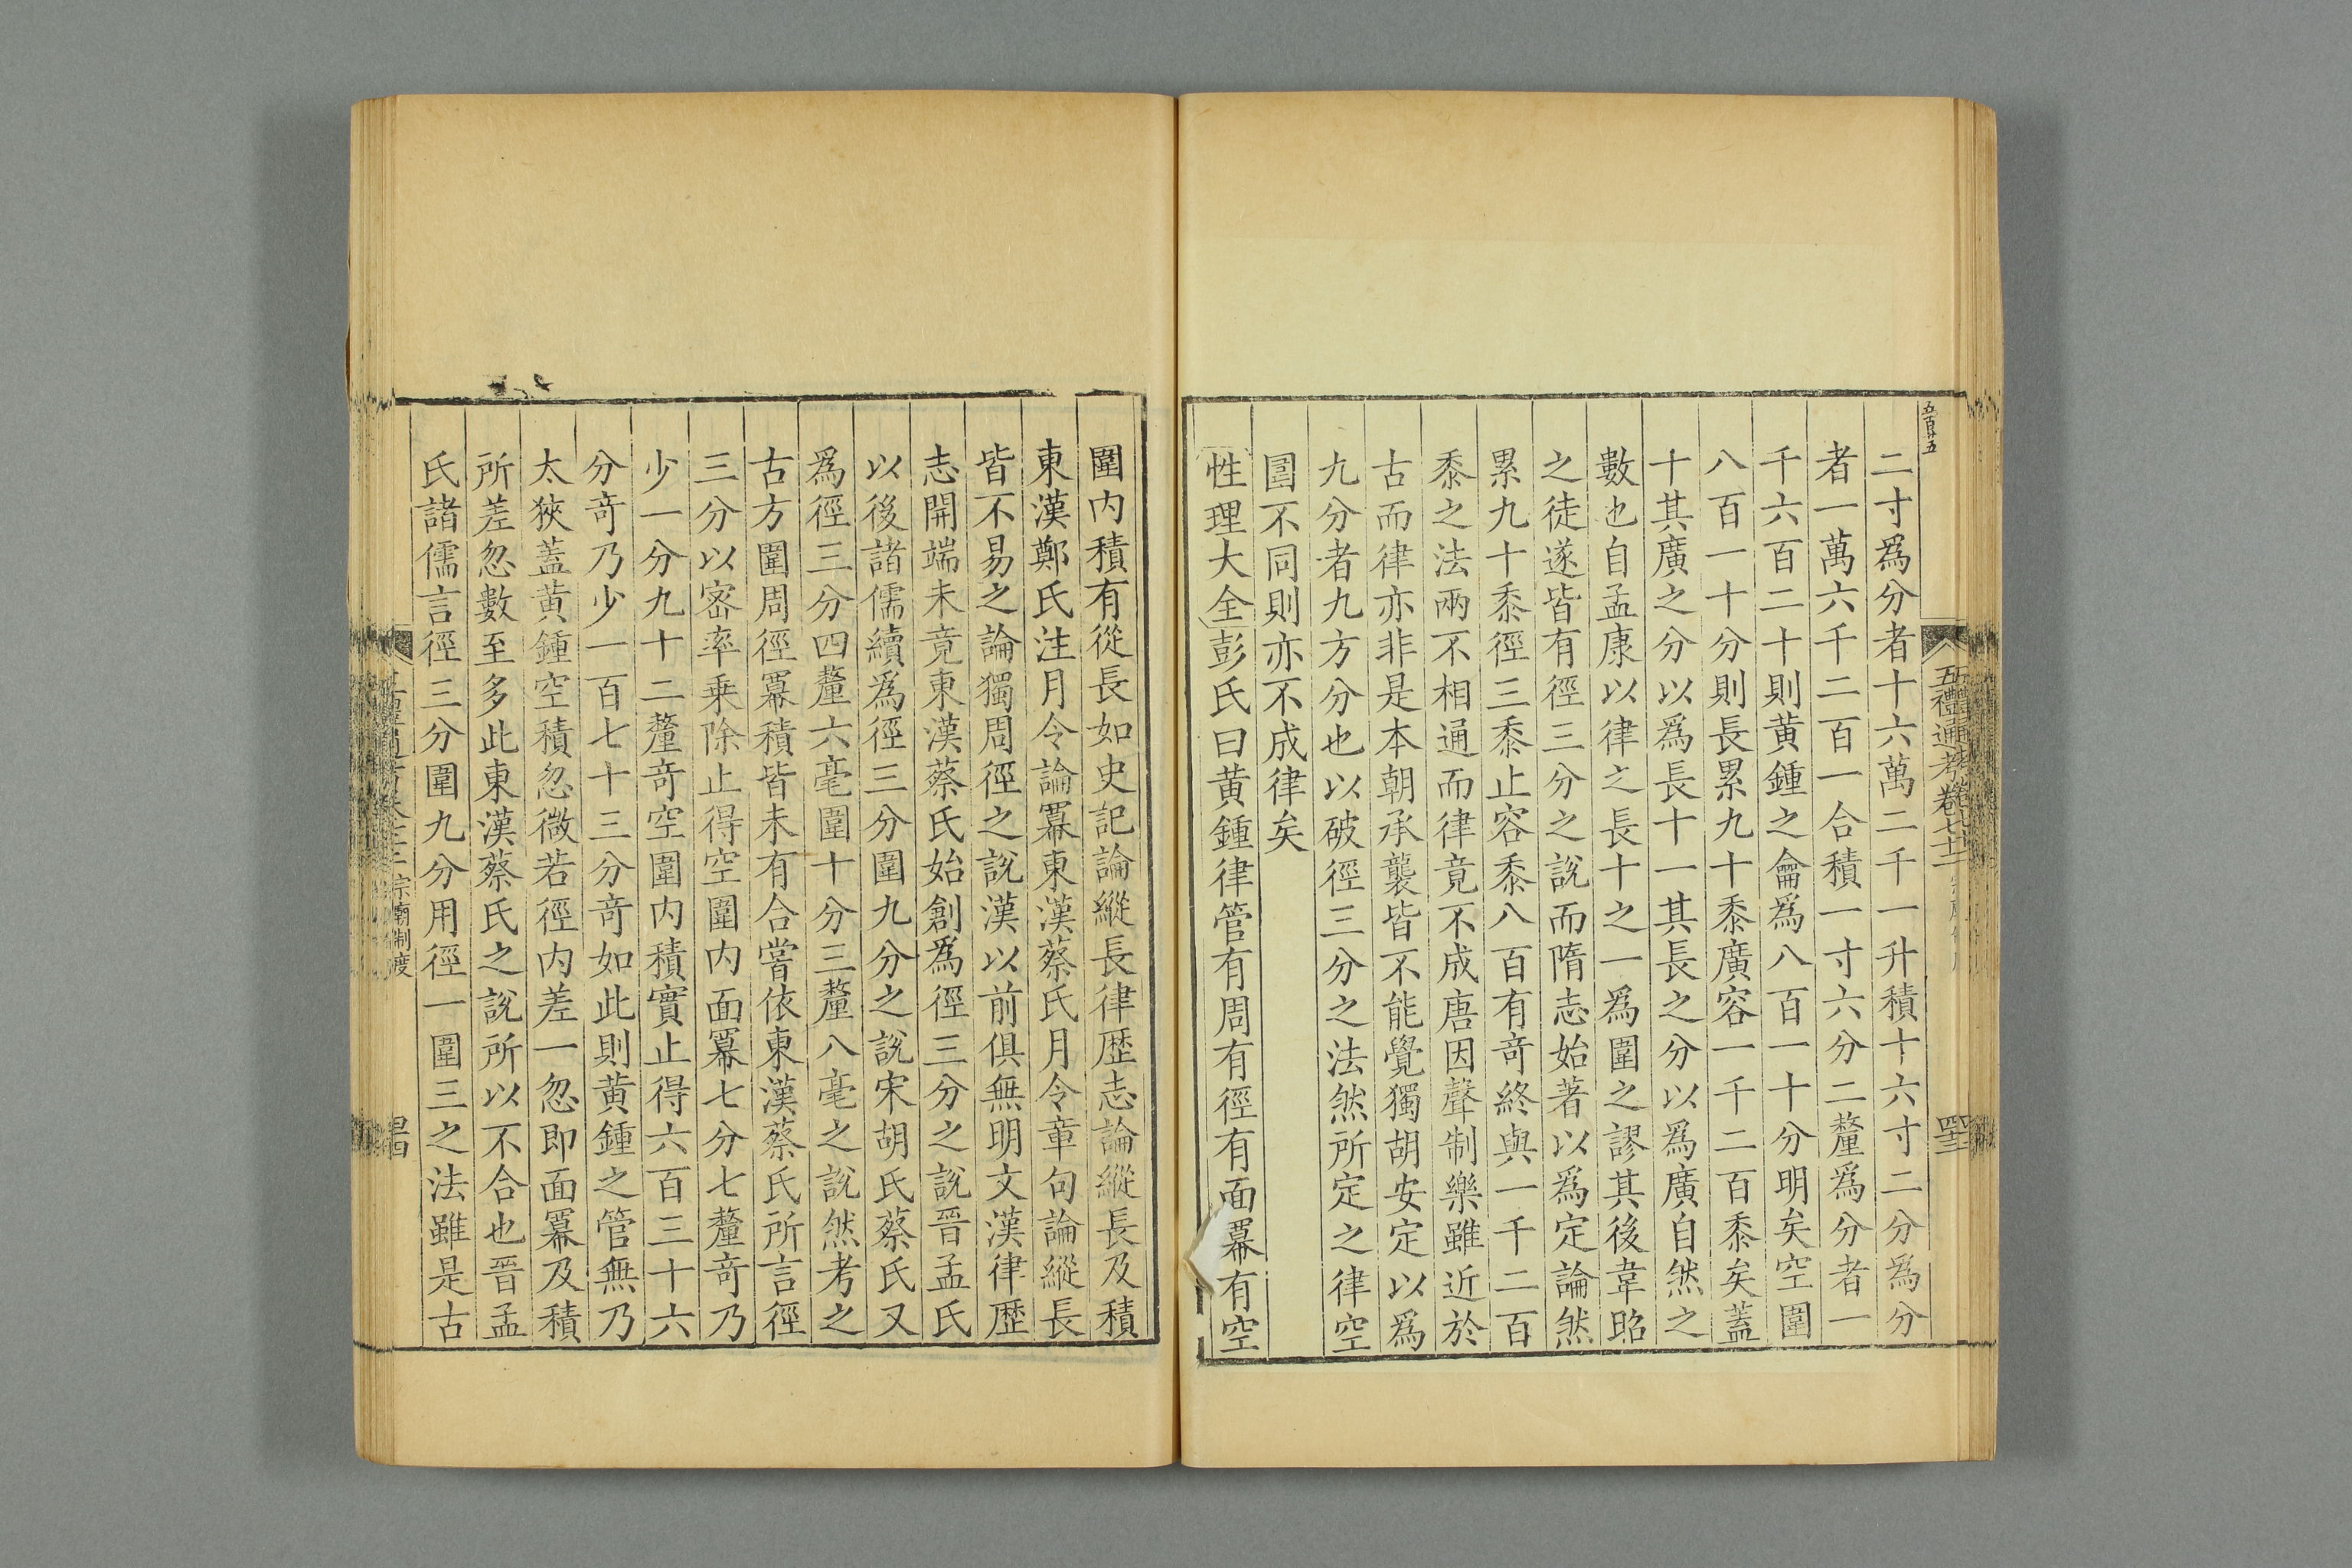 二寸爲分者十六萬二千一升積十六寸二分爲分
者一萬六千二百一合積一寸六分二釐爲分者一
千六百二十則黄鍾之龠爲八百一十分明矣空圍
八百一十分則長累九十黍廣容一千二百黍矣蓋
十其廣之分以爲長十一其長之分以爲廣自然之
數也自孟康以律之長十之一爲圍之謬其後韋昭
之徒遂皆有徑三分之說而隋志始著以爲定論然
累九十黍徑三黍止容黍八百有竒終與一千二百
黍之法兩不相通而律竟不成唐因聲制樂雖近於
古而律亦非是本朝承襲皆不能覺獨胡安定以爲
九分者九方分也以破徑三分之法然所定之律空
圍不同則亦不成律矣
性理大全彭氏曰黄鍾律管有周有徑有面冪有空
圍内積有從長如史記論縱長律歴志論縱長及積
東漢鄭氏注月令論冪東漢蔡氏月令章句論縱長
皆不易之論獨周徑之說漢以前俱無明文漢律歴
志開端未竟東漢蔡氏始創爲徑三分之說晉孟氏
以後諸儒續爲徑三分圍九分之說宋胡氏蔡氏又
爲徑三分四釐六毫圍十分三釐八毫之說然考之
古方圍周徑冪積皆未有合嘗依東漢蔡氏所言徑
三分以宻率乗除止得空圍内面冪七分七釐竒乃
少一分九十二釐竒空圍内積實止得六百三十六
分竒乃少一百七十三分竒如此則黄鍾之管無乃
太狹蓋黄鍾空積忽微若徑内差一忽即面冪及積
所差忽數至多此東漢蔡氏之說所以不合也晉孟
氏諸儒言徑三分圍九分用徑一圍三之法雖是古
五百廿五
五禮通考卷七十二
宗廟制度